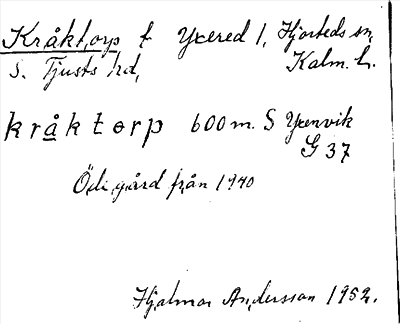 Kråktorp t Yxered 1, Hjorteds sn,
S. Tjusts hd, Kalm. l.
kråktorp 600 m. S Yxnvik
G 37
Öde gård från 1940
Hjalmar Andersson 1952.